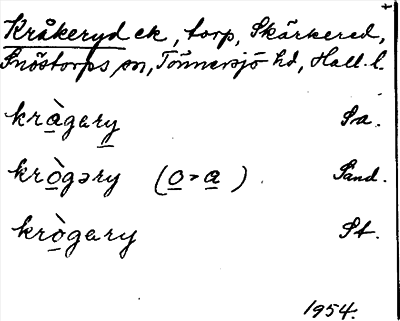 Kråkeryd ek, torp, Skärkered,
Snöstorps sn, Tönnersjö hd, Hall. l.
kràgary Sa.
krògəry (o > a) Sand.
krògary St.
1954.